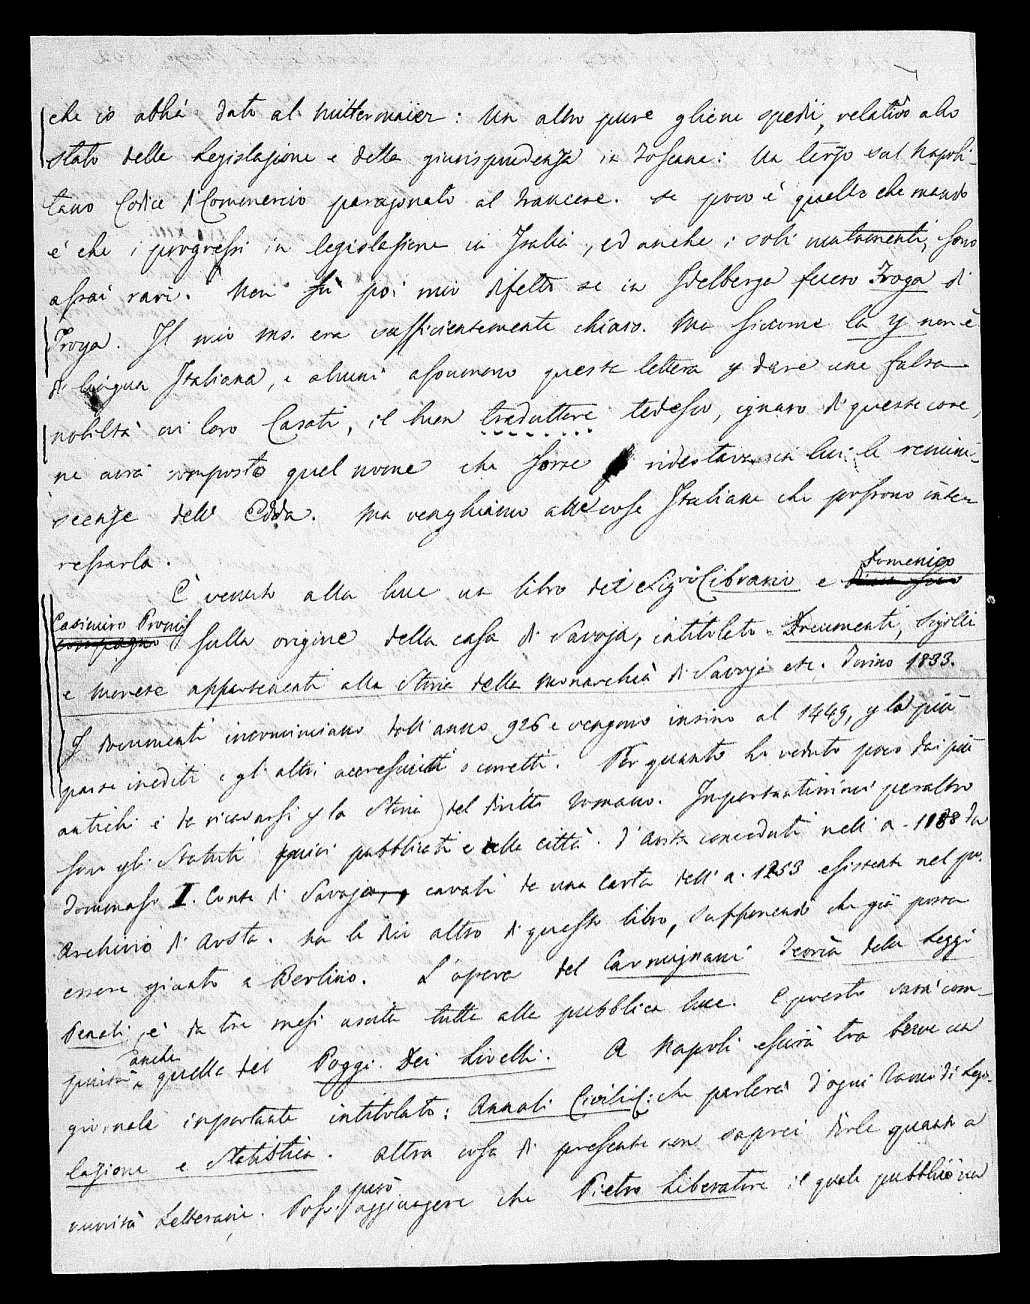 che io abbia dato al Mittermaier: Un altro pure gliene spedii, relativo allo
stato della Legislazione e della giurisprudenza in Toscana: Un terzo sul Napoli-
tano Codice di Commercio paragonato al Francese. Se poco è quello che mando
è che i progressi in legislazione in Italia, ed anche i soli sono
assai rari. Non fù poi mio difetto se in Idelberga fecero Froga di
Troya. Il mio ms. era sufficientemente chiaro. Ma siccome la y non è
di lingua Italiana, e alcuni assumono questa lettera p dare una falsa
nobiltà ai loro Casati, il buon traduttore tedesco, ignaro di queste cose,
ne avrà composto quel nome che forse ridestava in lui le remini-
scenze dell' Edda. Ma venghiamo alle cose Italiane che possono inte-
ressarla.
È venuto alla luce un libro del Sigr Cibrario e Domenico
Casimiro Promis sulla origine della casa di Savoja, intitolato = Documenti, Sigilli
e Monete appartenenti alla Storia della Monarchia di Savoja etc. Torino 1833.
I documenti incominciano dall'anno 926 e vengono insino al 1449, p la più
parte inediti e gli altri accresciuti o corretti. Per quanto ho veduto poco dai più
antichi è da ricavarsi p la Storia del diritto Romano. Importantissimi peraltro
son gli Statuti quivi pubblicati e della città d'Aosta conceduti nell' a. 1188 da
Tommaso I. Conte di Savoja, cavati da una carta dell' a. 1253 esistente nel pu.
Archivio d'Aosta. Ma le dei altro di questo libro, supponendo che già possa
essere giunto a Berlino. L'opera del Carmignani Teoria delle Leggi
Penali è da tre mesi uscita tutta alla pubblica luce. E presto sarà com-
piuta anche quella del Poggi. Dei Livelli. A Napoli escirà tra breve un
giornale importante intitolato: Annali Civili: che parlerà d'ogni ramo di Legis-
lazione e Statistica. Altra cosa di presente non saprei dirle quanto a
novità Letterarie. Posso però aggiungere che Pietro Liberatore il quale pubblicò un